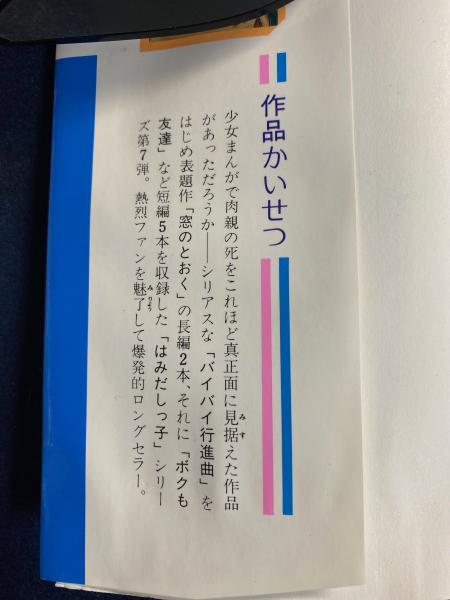 作品かいせつ
少女まんがで肉親の死をこれほど真正面に見据えた作品
があっただろうか――シリアスな「バイバイ行進曲」を
はじめ表題作「窓のとおく」の長編2本、それに「ボクも
友達」など短編5本を収録した「はみだしっ子」シリー
ズ第7弾。熱烈ファンを魅了して爆発的ロングセラー。